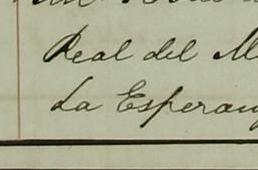 Real del M
La Esperan